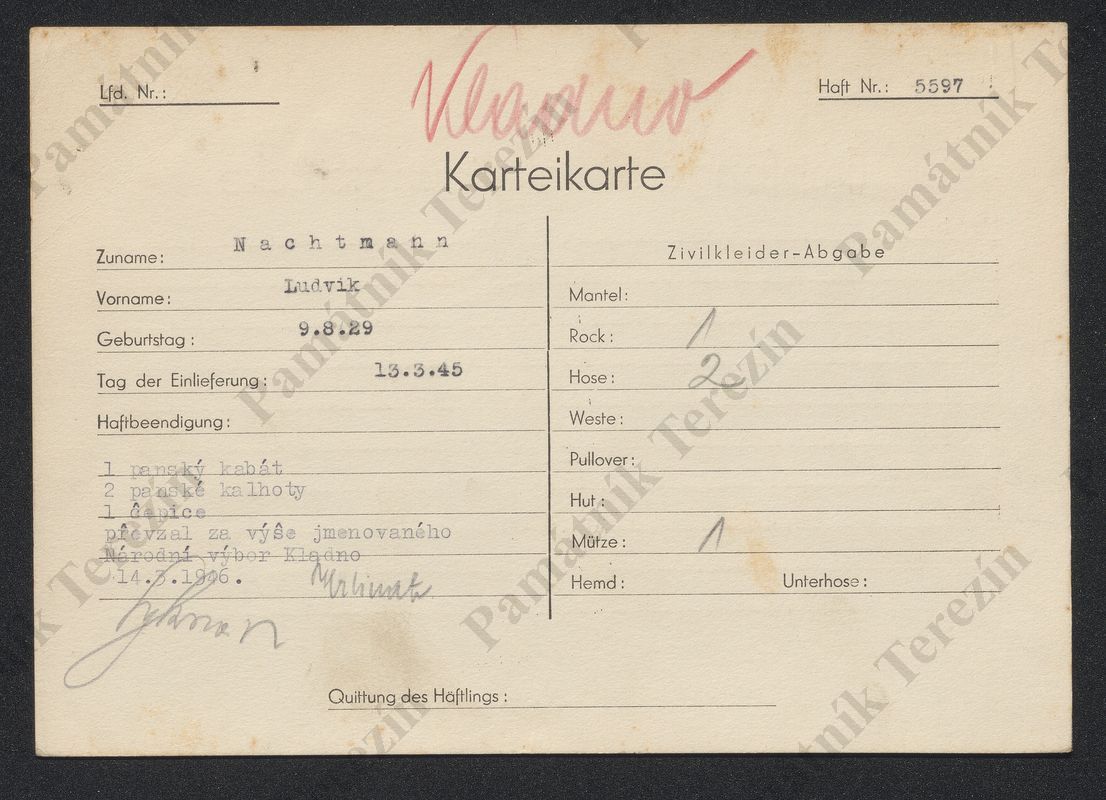 Kladno
Lfd. Nr.:
Haft Nr.: 5597
Karteikarte
Zuname: Nachtmann
Vorname: Ludvik
Geburtstag: 9.8.29
Tag der Einlieferung: 13.3.45
Haftbeendigung:
1 panský kabát
2 panské kalhoty
1 čepice
převzal za výše jmenovaného
Národní výbor Kladno
14.3.1946.
Zivilkleider-Abgabe
Mantel:
Rock: 1
Hose: 2
Weste:
Pullover:
Hut:
Mütze: 1
Hemd: Unterhose:
Quittung des Häftlings:
Památník Terezín
Památník Terezín
Památník Terezín
Památník Terezín